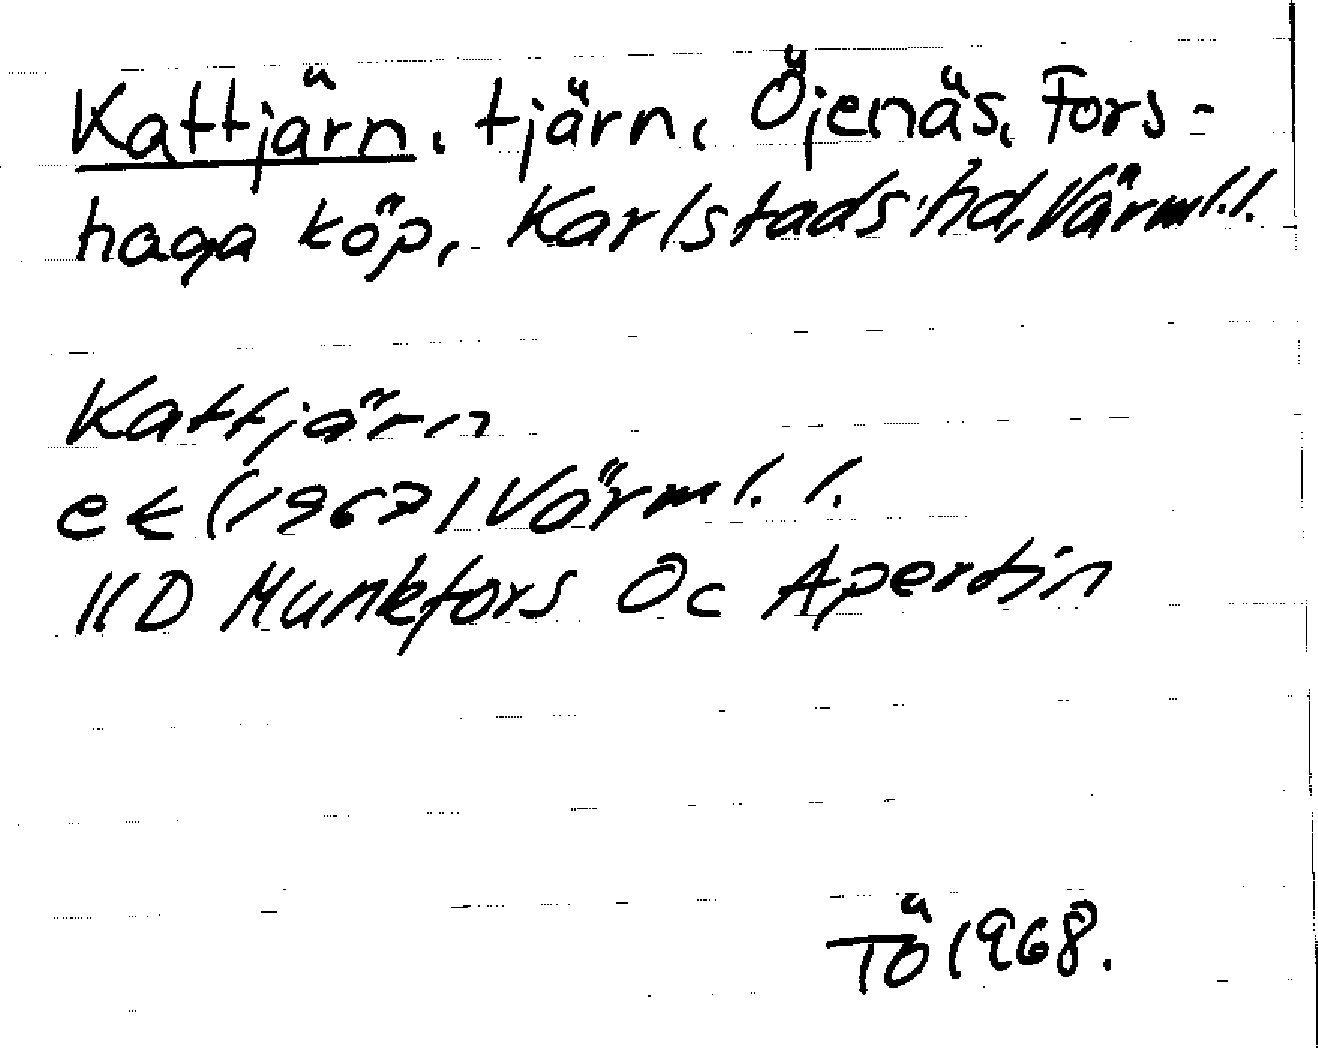 Kattjärn, tjärn, Öjenäs, Fors-
haga köp, Karlstads hd, Värml.l.
Kattjärn
ek (1967) Värml.l.
11D Munkfors Öc Apertin
TÖ 1968.